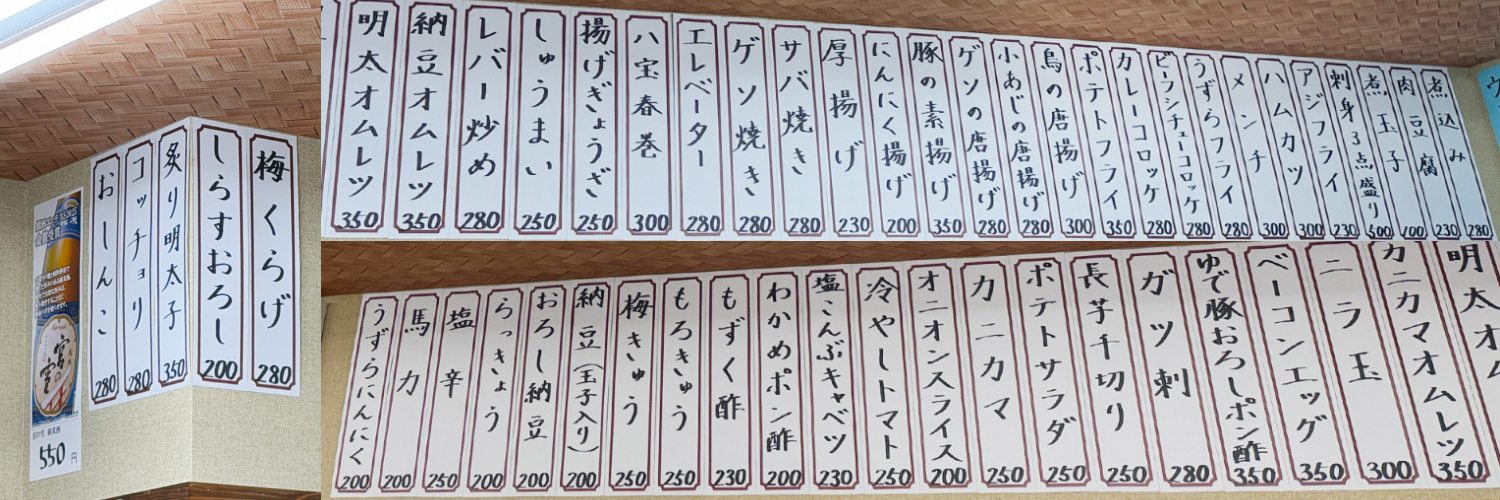 煮込み
280
肉豆腐
230
煮玉子
100
刺身3点盛り
500
アジフライ
230
ハムカツ
300
メンチ
300
うずらフライ
280
ビーフシチューコロッケ
280
カレーコロッケ
280
ポテトフライ
350
鳥の唐揚げ
300
小あじの唐揚げ
280
ゲソの唐揚げ
280
豚の素揚げ
350
にんにく揚げ
200
厚揚げ
230
サバ焼き
280
ゲソ焼き
280
エレベーター
280
八宝春巻
300
揚げぎょうざ
250
しゅうまい
250
レバー炒め
280
納豆オムレツ
350
明太オムレツ
350
明太オム
カニカマオムレツ
350
ニラ玉
300
ベーコンエッグ
350
ゆで豚おろしポン酢
350
ガツ刺
280
長芋千切り
250
ポテトサラダ
250
カニカマ
250
オニオンスライス
200
冷やしトマト
250
塩こんぶキャベツ
230
わかめポン酢
200
もずく酢
230
もろきゅう
250
梅きゅう
250
納豆(玉子入り)
200
おろし納豆
200
らっきょう
200
塩辛
250
馬力
200
うずらにんにく
200
梅くらげ
280
しらすおろし
200
炙り明太子
350
コッチョリ
280
おしんこ
280
宮の雪
550円